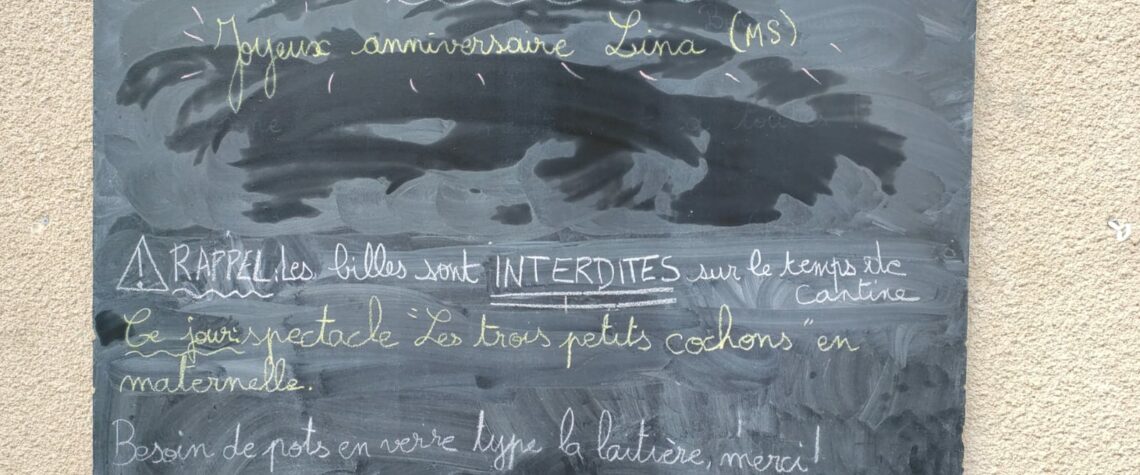 Joyeux anniversaire Lina (MS)
RAPPEL: Les billes sont INTERDITES sur le temps de
cantine
Ce jour: spectacle "Les trois petits cochons" en
maternelle.
Besoin de pots en verre type la laitière, merci!